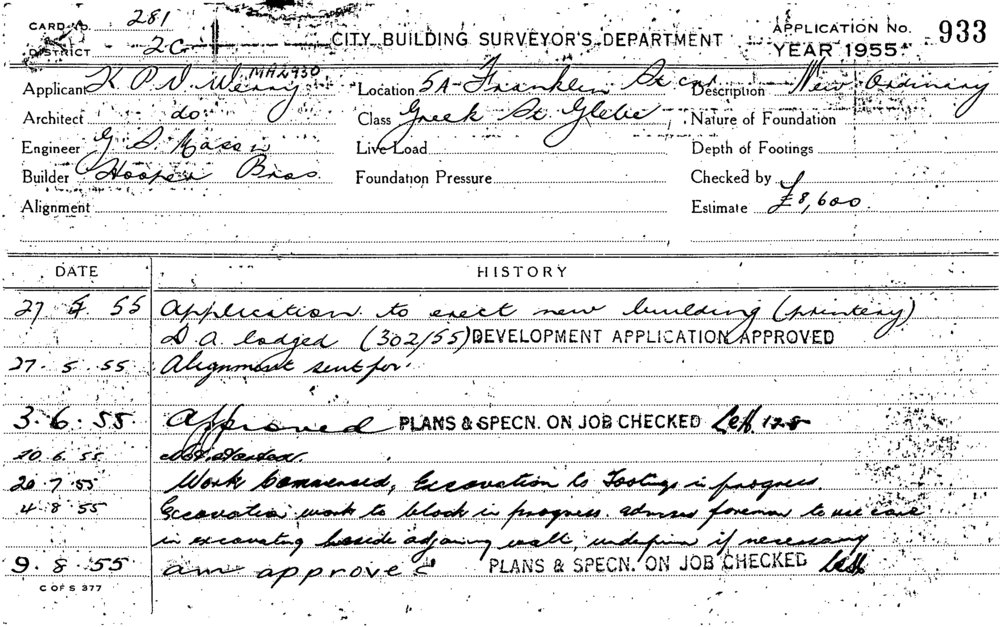 CARD No. 281
DISTRICT 2C
CITY BUILDING SURVEYOR'S DEPARTMENT
APPLICATION No. 933
YEAR 1955
Applicant K P D Werry MA2930
Location 5A Franklin St cnr
Description New Ordinary
Architect do
Class Greek St. Glebe
Nature of Foundation
Engineer G. S.
Live Load
Depth of Footings
Builder Hooper Bros.
Foundation Pressure
Checked by
Alignment
Estimate £8,600
DATE HISTORY
27 5 55 Application to erect new building (printery)
D A. lodged (302/55) DEVELOPMENT APPLICATION APPROVED
27. 5. 55 Alignment sent for.
3. 6. 55 Approved PLANS & SPECN. ON JOB CHECKED 12.8
20 6 55 Not started.
20 7 55 Work Commenced, Excavation to Footings in progress.
4. 8. 55 Excavation work to block in progress. advised foreman to use care
in excavating beside adjoining wall, underpin if necessary
9. 8. 55 am approved PLANS & SPECN. ON JOB CHECKED
C OF S 377